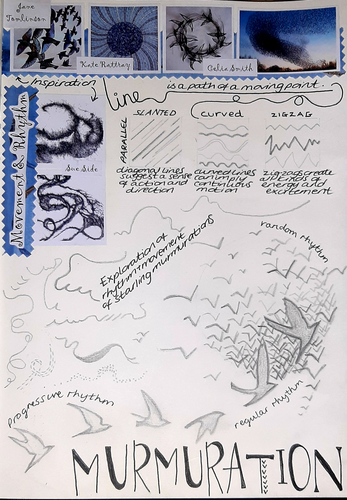 Jane
Tomlinson
Kate Rattray
Celia Smith
Inspiration
Line is a path of a moving point.
Movement & Rhythm
Sue Side
PARALLEL
SLANTED
diagonal lines
suggest a sense
of action and
direction
curved
curved lines
can imply
continuous
motion
ZIGZAG
zigzags create
a
energy and
excitement
Exploration of
rhythm + movement
of starling murmurations
random rhythm
progressive rhythm
regular rhythm
MURMURATION